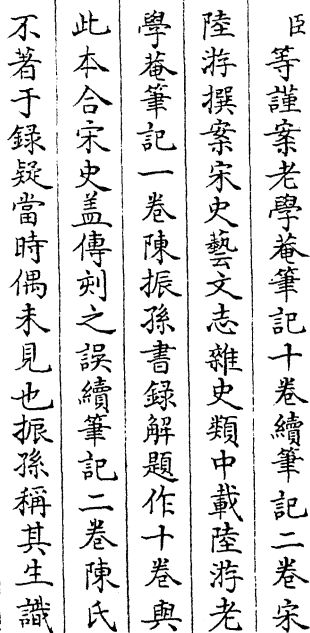 臣等謹案老學菴筆記十卷續筆記二卷宋
陸游撰案宋史藝文志雜史類中載陸游老
學菴筆記一卷陳振孫書錄解題作十卷與
此本合宋史盖傳刻之誤續筆記二卷陳氏
不著于録疑當時偶未見也振孫稱其生識